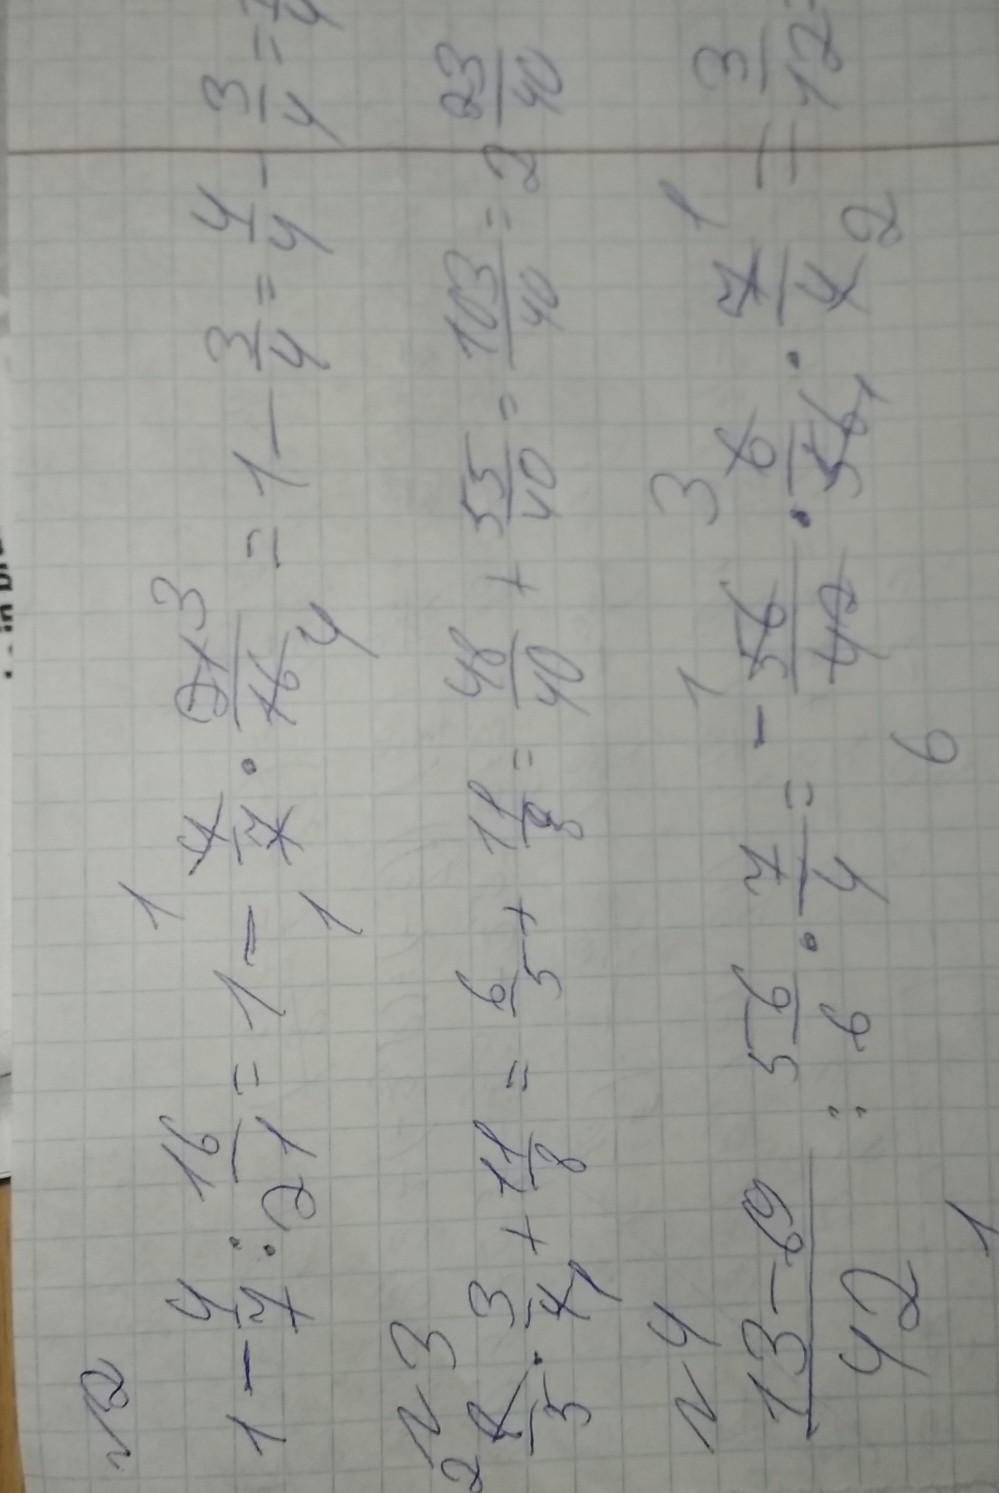 №2
1 - 4/7 : 16/21 = 1 - 4/7 · 21/16 = 1 - 3/4 = 4/4 - 3/4 =
1 1 3 4
№3
8/5 · 3/4 + 11/8 = 6/5 + 11/8 = 48/40 + 55/40 = 103/40 = 2 23/40
2 1
№4
13-69/42 : 56/6 · 7/4 = - 56/42 · 6/56 · 7/4 = - 3/12
1 3 1
6 1 2
1